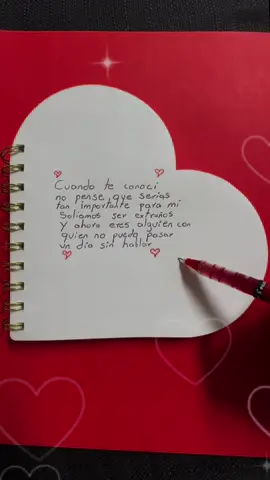 Cuando te conocí
no pense que serías
tan importante para mi
Solíamos ser extraños
Y ahora eres alguien con
quien no puedo pasar
un día sin hablar